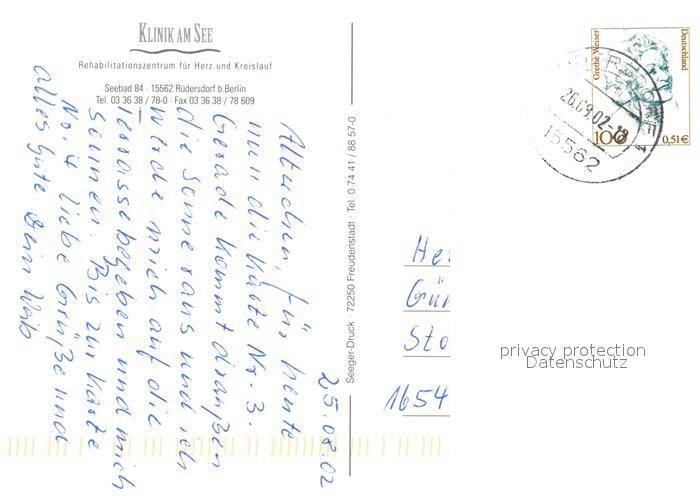 KLINIK AM SEE
Rehabilitationszentrum für Herz und Kreislauf
Seebad 84 · 15562 Rüdersdorf b.Berlin
Tel. 03 36 38 / 78-0 · Fax 03 36 38 / 78 609
25.08.02
Alterchen, für heute
nun die Karte Nr. 3.
Gerade kommt draußen
die Sonne raus und ich
werde mich auf die
Terrasse begeben und mich
sonnen. Bis zur Karte
Nr. 4 liebe Grüße und
alles Gute Dein Weib
Seeger-Druck · 72250 Freudenstadt · Tel. 0 74 41 / 88 57-0
Grethe Weiser
Deutschland
100
0,51€
26.08.02-18
15562
He
Gü
Sto
1654
privacy protection
Datenschutz